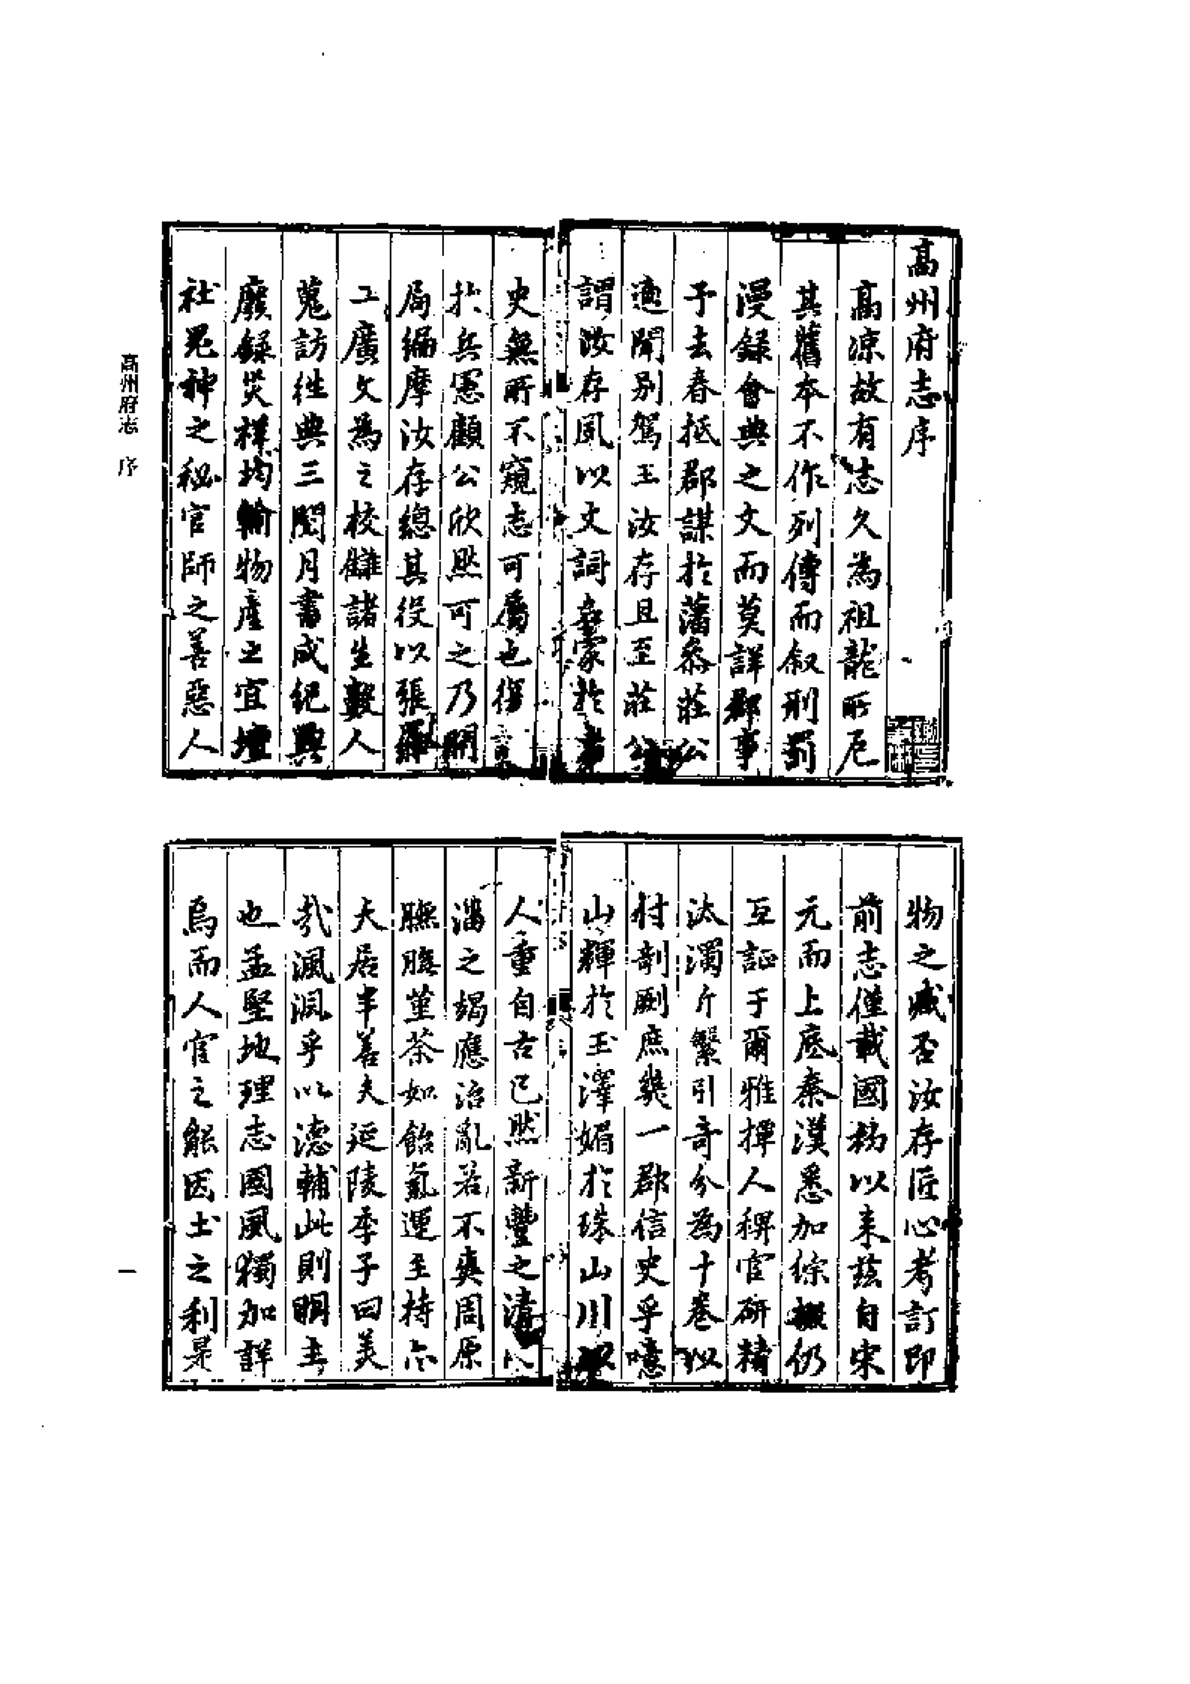 高州府志序
高涼故有志久為祖龍所厄
其舊本不作列傳而叙刑罰
漫錄會典之文而莫詳郡事
予去春抵郡謀於藩叅莊公
適聞別駕王汝存且至莊公
謂汝存風以文詞豪於
史無所不窺志可屬也復
於兵憲顧公欣然可之乃開
局編摩汝存總其役以張
工廣文為之校讎諸生數人
蒐訪往典三閱月書成紀興
廢錄災祥均輸物產之宜壇
社鬼神之秘官師之善惡人
物之臧否汝存匠心考訂即
前志僅載國初以來茲自宋
元而上底秦漢悉加綜緝仍
互証于爾雅撢人稗官研精
汰濁斤繁引奇分為十卷以
付剞劂庶幾一郡信史乎噫
山輝於玉澤媚於珠山川以
人重自古已然新豐之清
淄之竭應治亂若不爽周原
膴膴堇荼如飴氣運至持
大居半善夫延陵季子曰美
哉渢渢乎以德輔此則明主
也孟堅地理志國風獨加詳
焉而人官之能因土之利是
高州府志 序
一